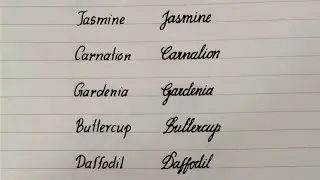 Jasmine Jasmine
Carnation Carnation
Gardenia Gardenia
Buttercup Buttercup
Daffodil Daffodil